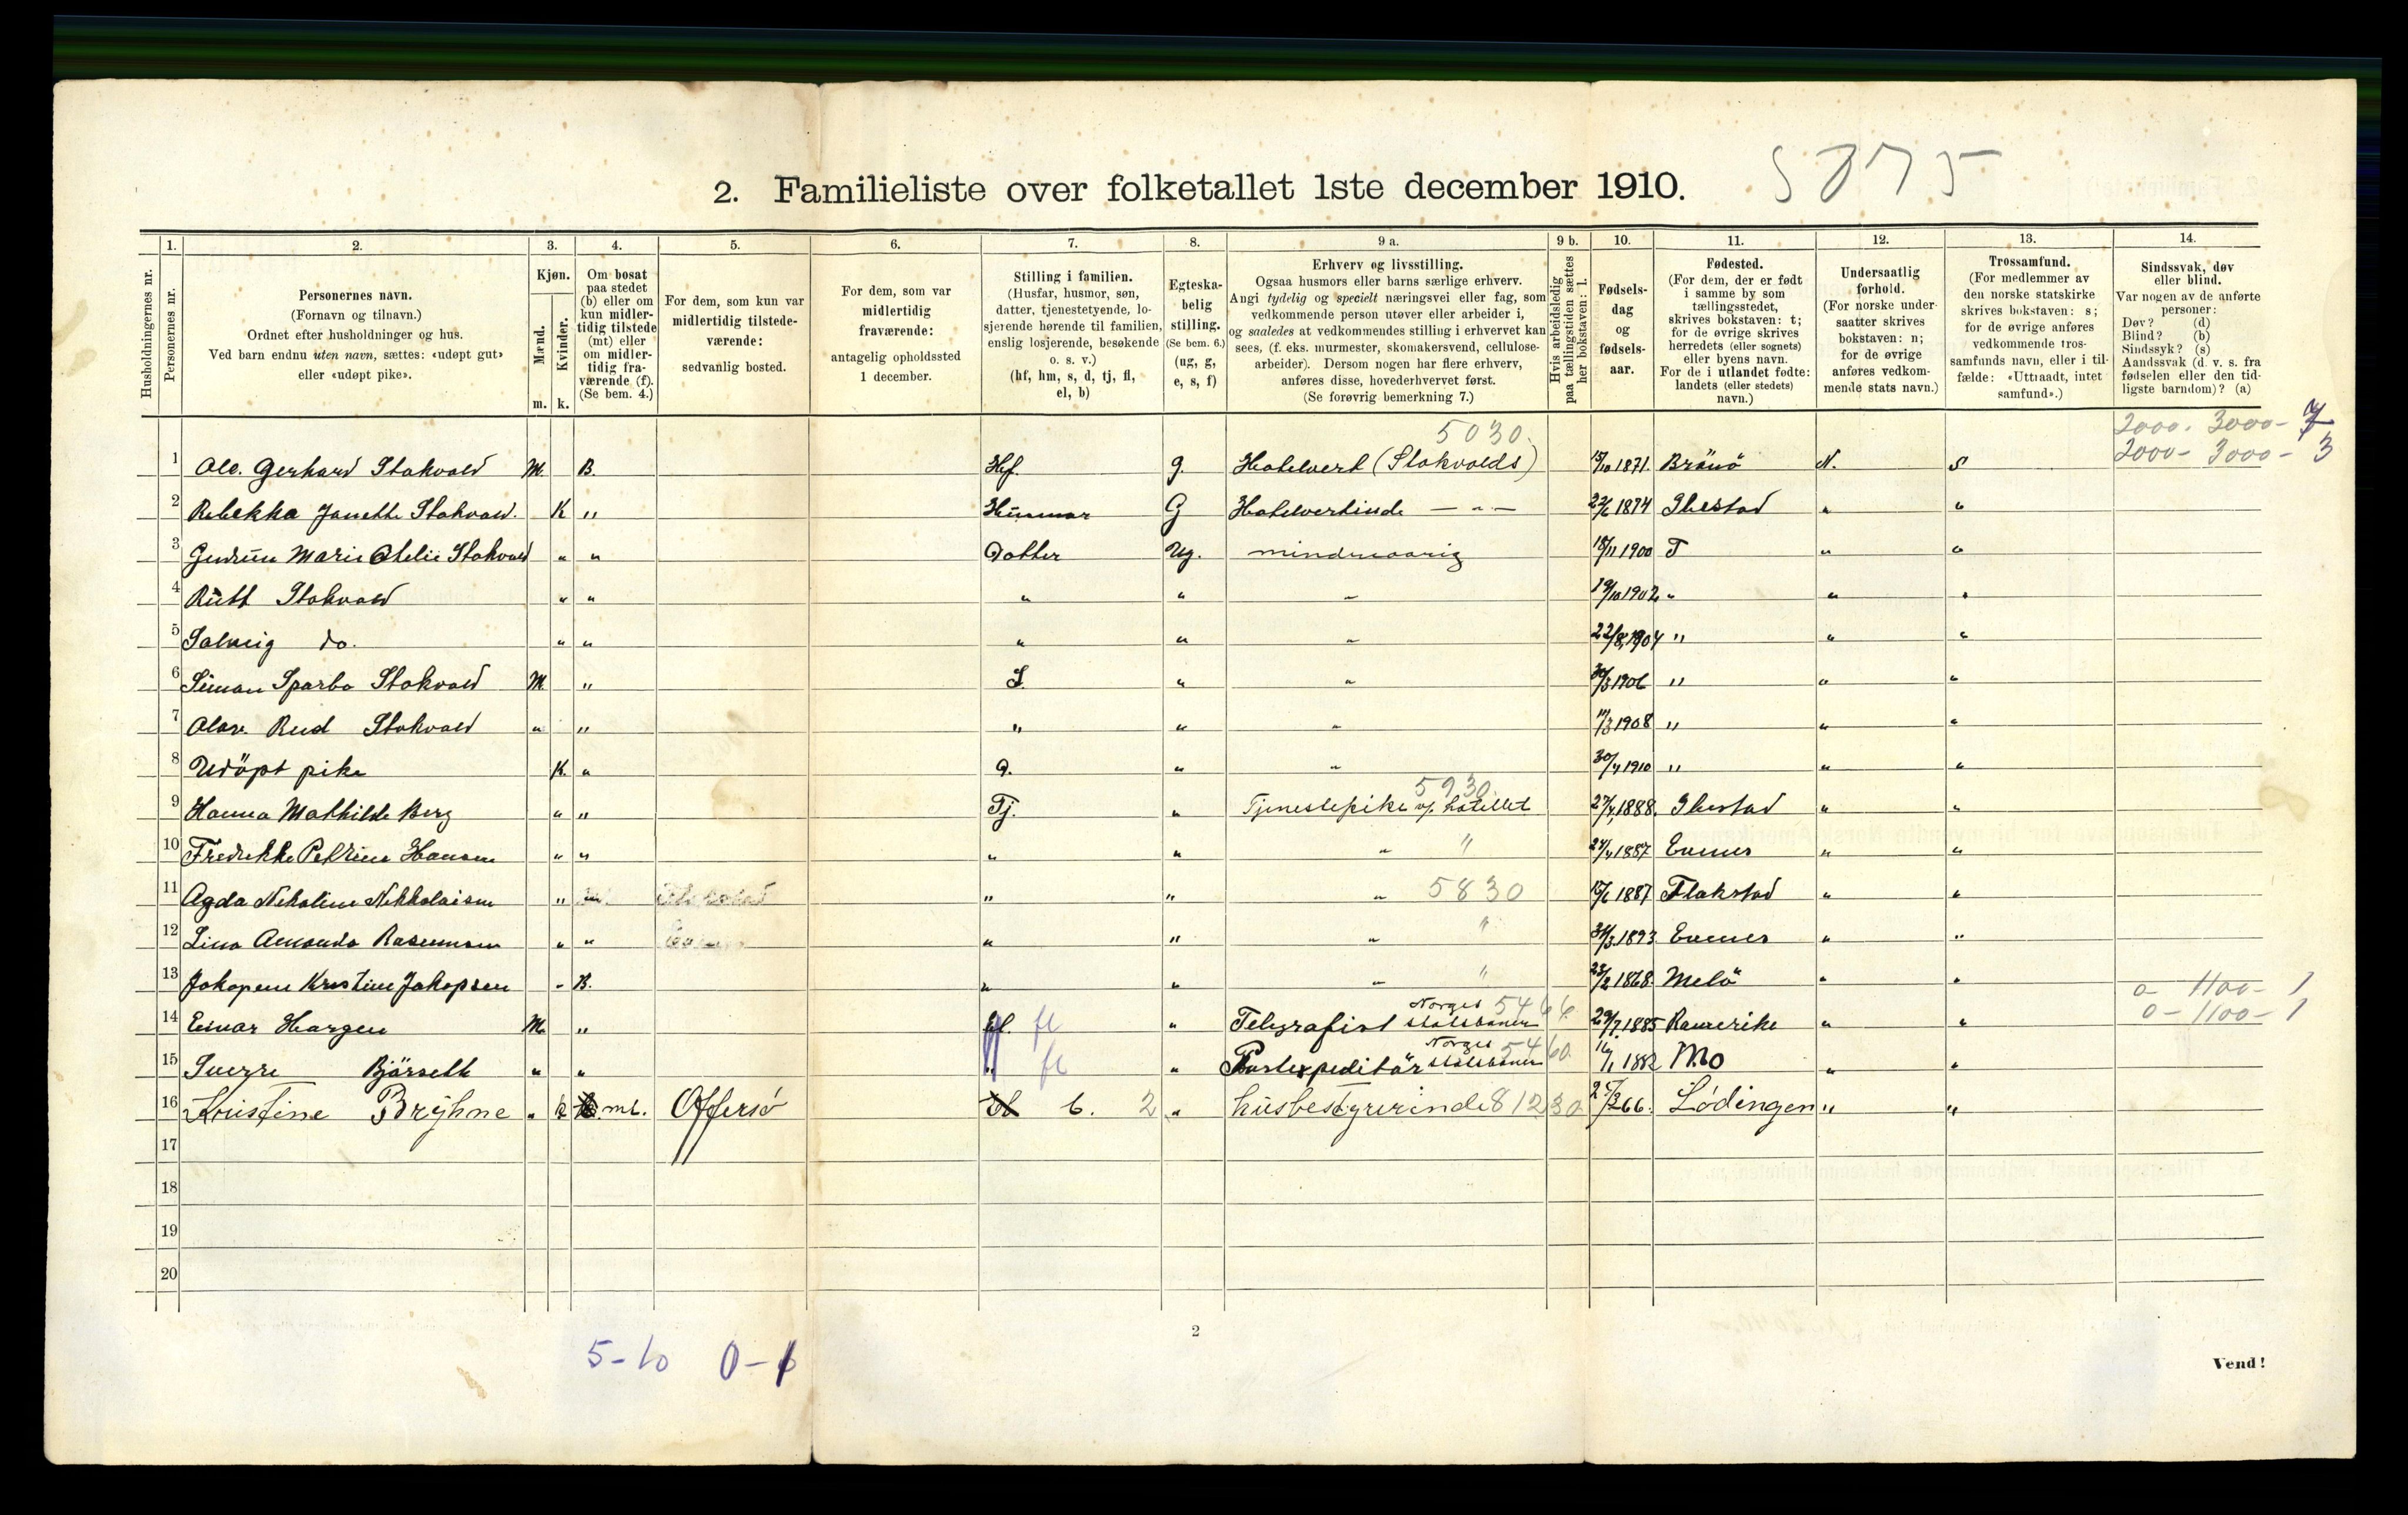 2. Familieliste over folketallet 1ste december 1910.
5875
1. 2. 3. 4. 5. 6. 7. 8. 9 a. 9 b. 10. 11. 12. 13. 14.
Husholdningernes nr.
Personernes nr.
Personernes navn.
(Fornavn og tilnavn.)
Ordnet efter husholdninger og hus.
Ved barn endnu uten navn, sættes: «udøpt gut»
eller «udøpt pike».
Kjøn.
Mænd.
Kvinder.
m. k.
Om bosat
paa stedet
(b) eller om
kun midler-
tidig tilstede
(mt) eller
om midler-
tidig fra-
værende (f).
(Se bem. 4.)
For dem, som kun var
midlertidig tilstede-
værende:
sedvanlig bosted.
For dem, som var
midlertidig
fraværende:
antagelig opholdssted
1 december.
Stilling i familien.
(Husfar, husmor, søn,
datter, tjenestetyende, lo-
sjerende hørende til familien,
enslig losjerende, besøkende
o. s. v.)
(hf, hm, s, d, tj, fl,
el, b)
Egteska-
belig
stilling.
(Se bem. 6.)
(ug, g,
e, s, f)
Erhverv og livsstilling.
Ogsaa husmors eller barns særlige erhverv.
Angi tydelig og specielt næringsvei eller fag, som
vedkommende person utøver eller arbeider i,
og saaledes at vedkommendes stilling i erhvervet kan
sees, (f. eks. murmester, skomakersvend, cellulose-
arbeider). Dersom nogen har flere erhverv,
anføres disse, hovederhvervet først.
(Se forøvrig bemerkning 7.)
Hvis arbeidsledig
paa tællingstiden sættes
her bokstaven: l.
Fødsels-
dag
og
fødsels-
aar.
Fødested.
(For dem, der er født
i samme by som
tællingsstedet,
skrives bokstaven: t;
for de øvrige skrives
herredets (eller sognets)
eller byens navn.
For de i utlandet fødte:
landets (eller stedets)
navn.)
Undersaatlig
forhold.
(For norske under-
saatter skrives
bokstaven: n;
for de øvrige
anføres vedkom-
mende stats navn.)
Trossamfund.
(For medlemmer av
den norske statskirke
skrives bokstaven: s;
for de øvrige anføres
vedkommende tros-
samfunds navn, eller i til-
fælde: «Uttraadt, intet
samfund».)
Sindssvak, døv
eller blind.
Var nogen av de anførte
personer:
Døv? (d)
Blind? (b)
Sindssyk? (s)
Aandssvak (d. v. s. fra
fødselen eller den tid-
ligste barndom)? (a)
5030. 2000. 3000-
1 Ole. Gerhard Stokvold M. B. Hf. g. Hotelvert (Stokvolds) 15/10 1871. Brönö N. S 2000- 3000- 3
2 Rebekka Janette Stokvold. K " Husmor G Hotelvertinde — " — 22/6 1874 Ibestad " "
3 Gudrun Marie Otelie Stokvold " " Dotter Ug. mindreaarig 18/11 1900 T " "
4 Rutt Stokvold " " " " " 19/10 1902 " " "
5 Solveig do. " " " " " 22/8 1904 " " "
6 Simon Sparbo Stokvold M. " S. " " 30/5 1906 " " "
7 Olav. Reid Stokvold " " " " " 11/3 1908 " " "
8 Udöpt pike K. " D. " " 30/4 1910 " " "
5930
9 Hanna Mathilde Berg " " Tj. " Tjenestepike v/. hotellet 27/4 1888. Ibestad " "
10 Fredrikke Petrine Hansen " " " " " " 24/4 1887 Evenes " "
11 Agda Nikoline Nikkolaisen " " " " 5830 15/6 1887 Flakstad " "
12 Lina Amanda Rasmussen " " " " " " 31/3 1893. Evenes " "
13 Jakopine Kristine Jakopsen " B. " " " " 23/2 1868. Melö " " 0- 1100- 1
14 Einar Hargen M. " fl " Telegrafist Norges statsbaner 29/7 1885 Raumerike " " 0- 1100- 1
15 Sverre Bjørseth " " " fl " Postexpeditör Norges statsbaner 5460 16/1 1882 Mo " "
16 Kristine Brÿhne " k mt. Offersø b. 2 " husbestyrerinde 81230 25/3 66. Lödingen " "
17
18
19
20
2
5-10 0-1
Vend!